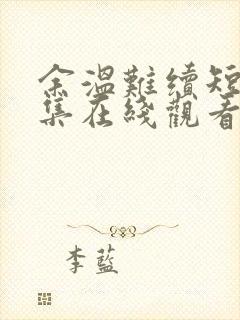 余溫難續短
集在綫觀看
李藍